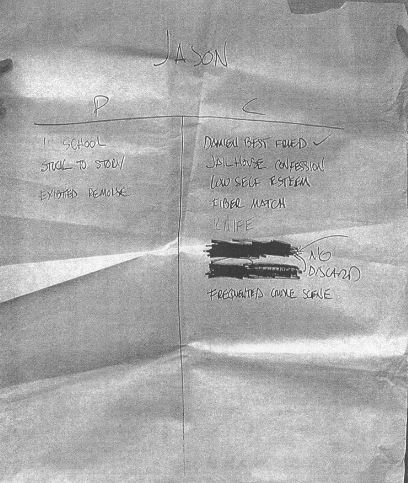 JASON
P
IN SCHOOL
STUCK TO STORY
EXIBTED REMORSE
C
DAMIEN BEST FRIED ✓
JAILHOUSE CONFESSION
LOW SELF ESTEEM
FIBER MATCH
KNIFE
NO
DISCARD
FREQUENTED CRIME SCENE